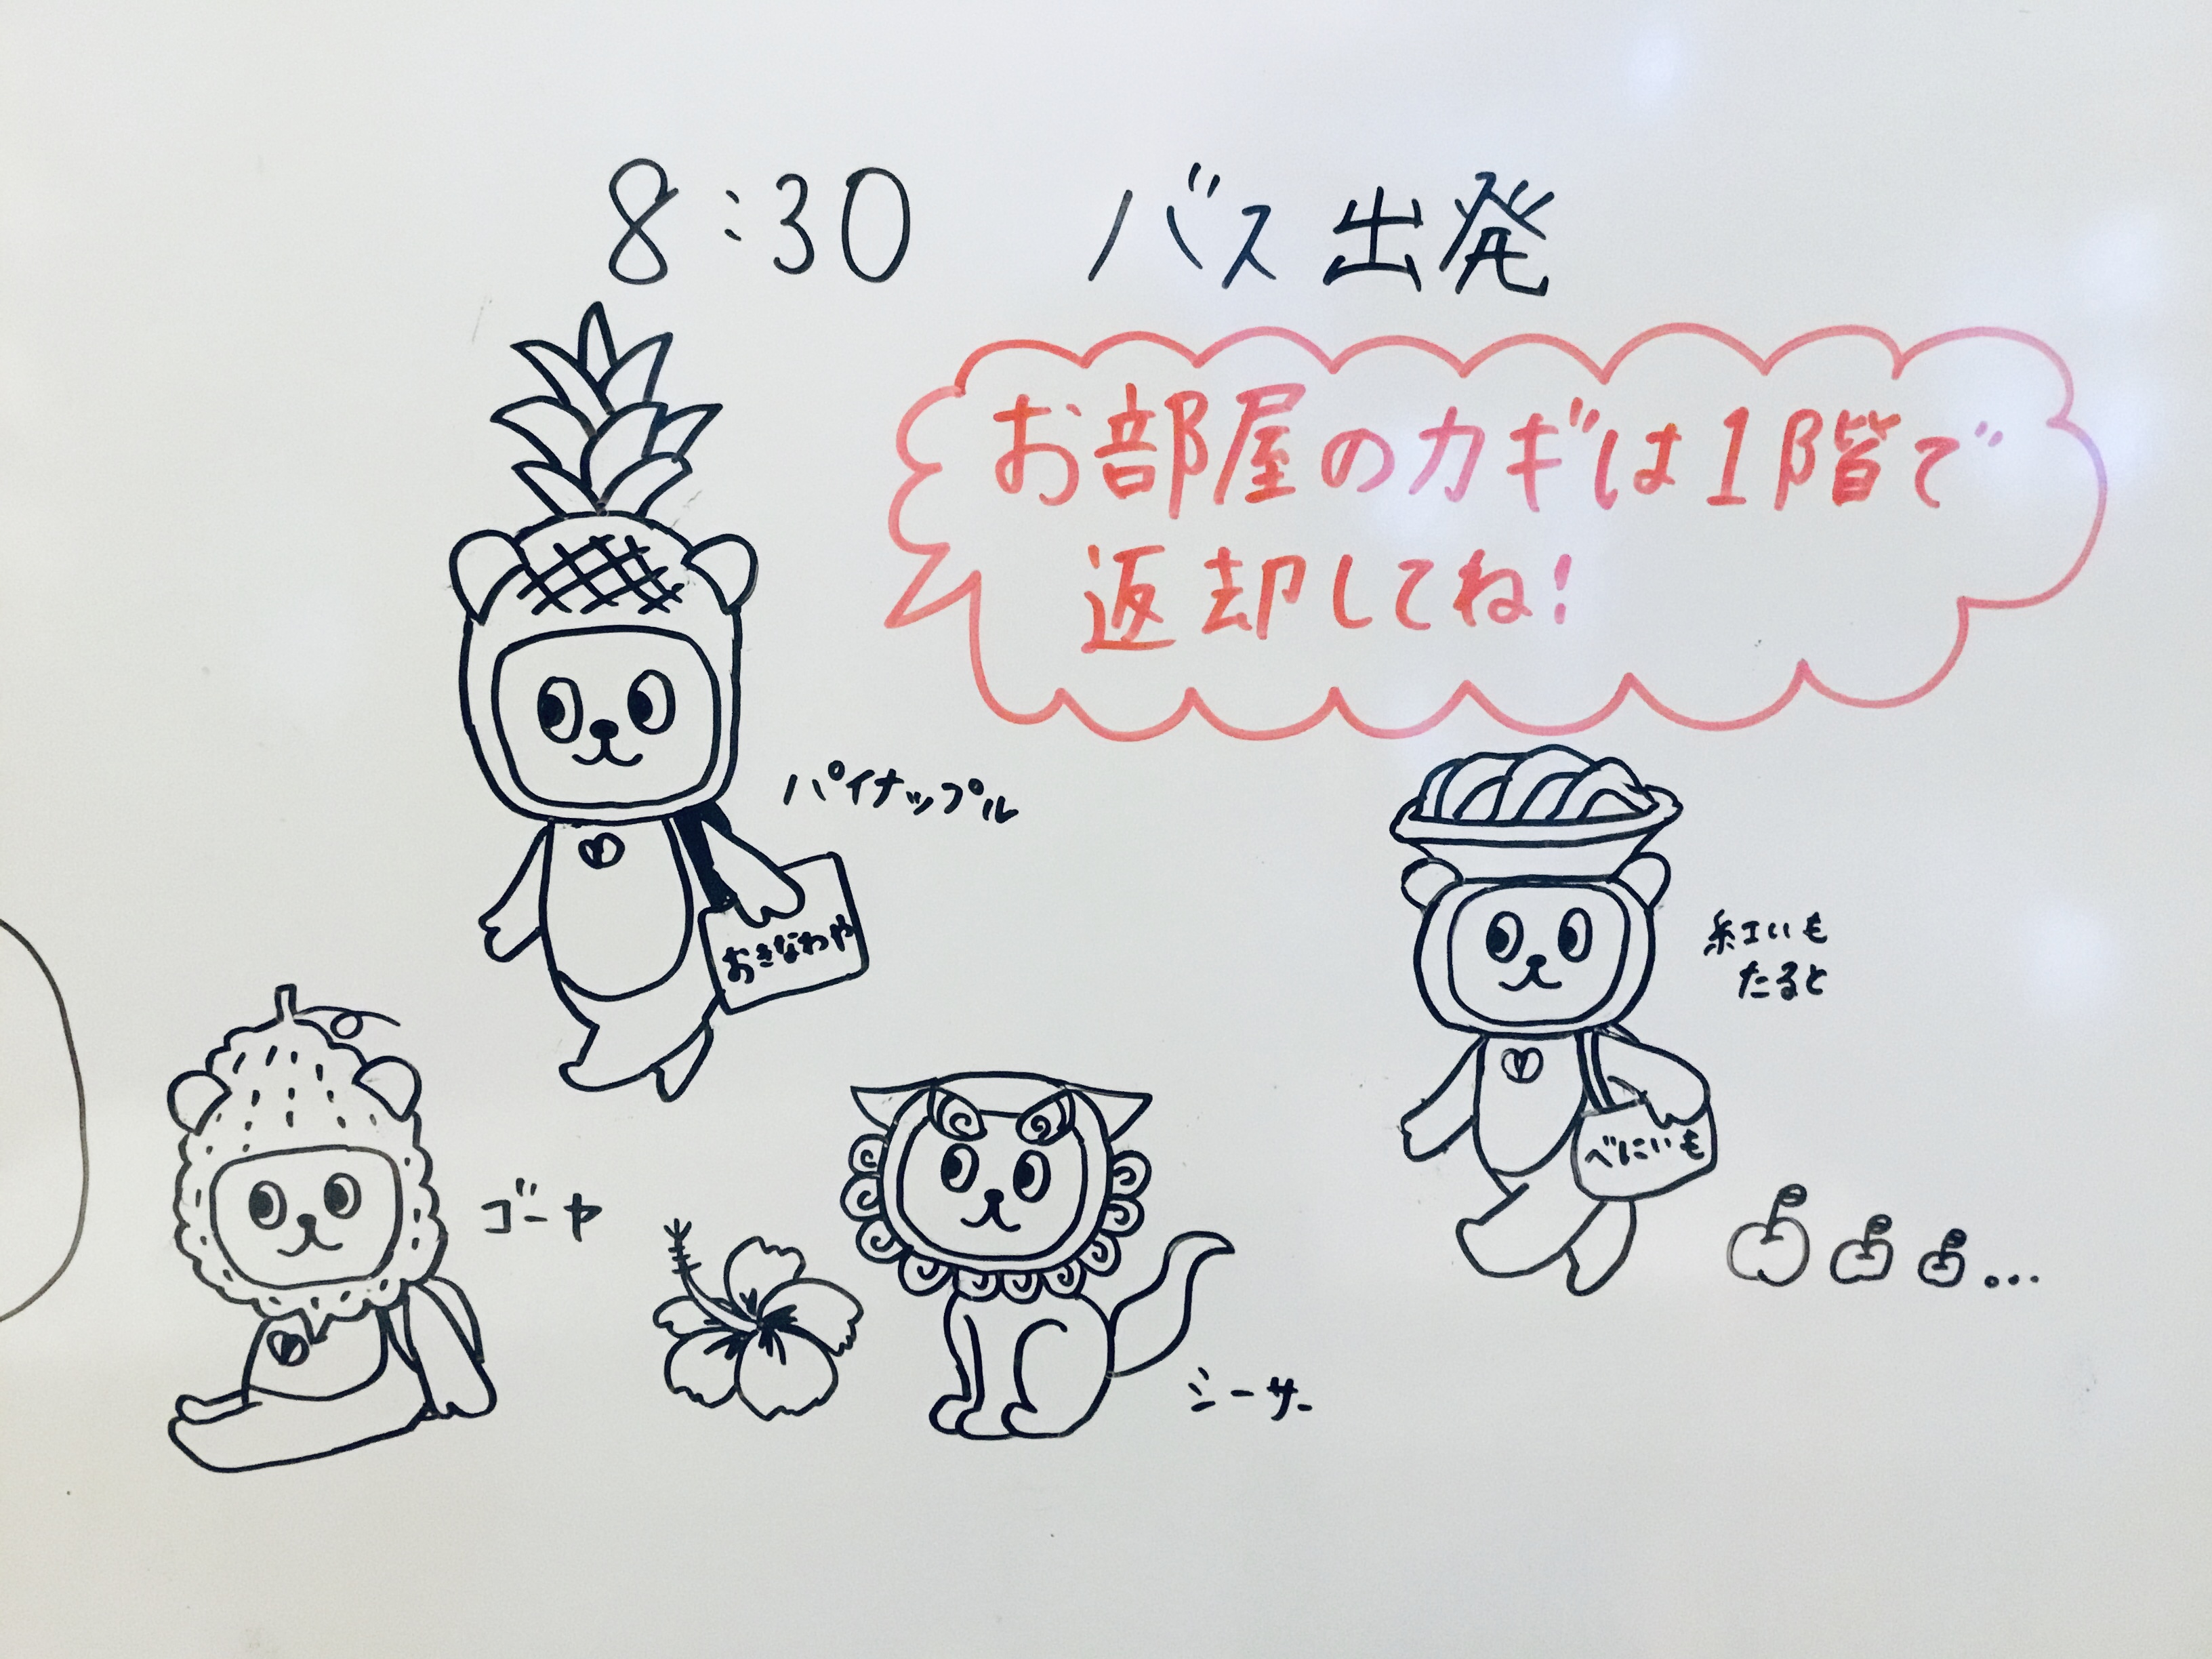 8:30 バス出発
お部屋のカギは1階で
返却してね!
パイナップル
おきなわや
紅いも
たると
べにいも
ゴーヤ
シーサー